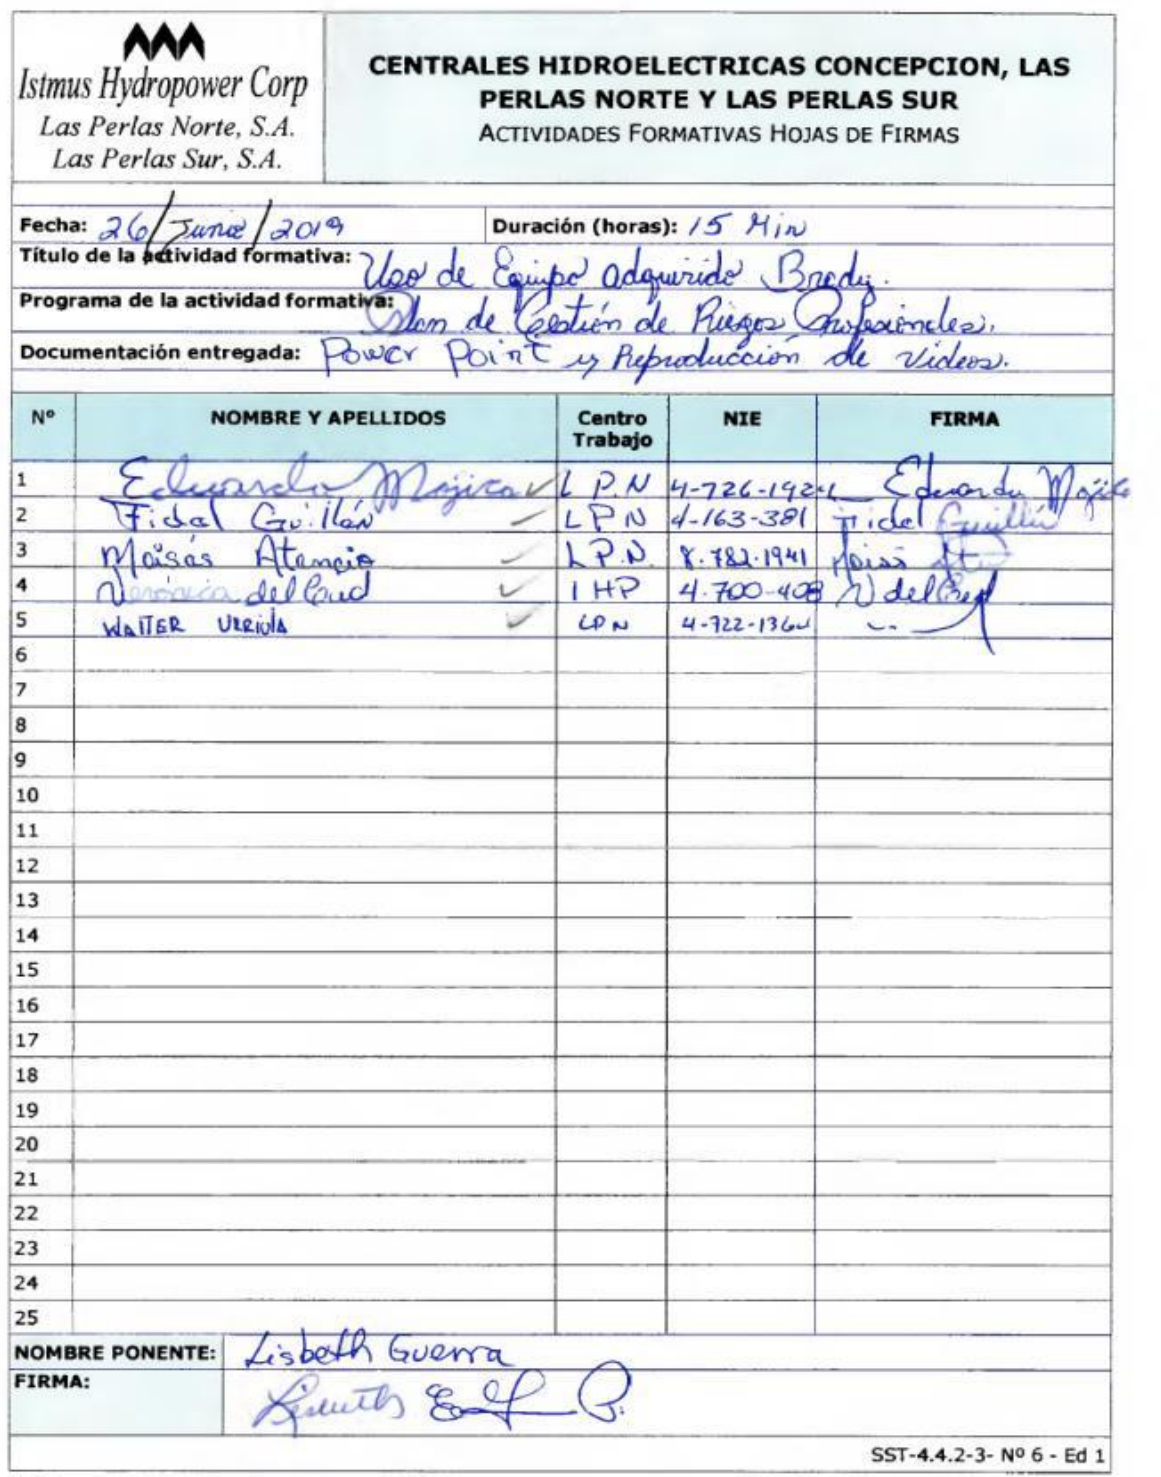 Istmus Hydropower Corp
Las Perlas Norte, S.A.
Las Perlas Sur, S.A.
CENTRALES HIDROELECTRICAS CONCEPCION, LAS
PERLAS NORTE Y LAS PERLAS SUR
ACTIVIDADES FORMATIVAS HOJAS DE FIRMAS
Fecha: 26/Junio/2019 Duración (horas): 15 Min
Título de la actividad formativa: Uso de Equipo adquirido Brady.
Programa de la actividad formativa: Plan de Gestión de Riesgos Profesionales.
Documentación entregada: Power Point y Reproducción de videos.
Nº NOMBRE Y APELLIDOS Centro Trabajo NIE FIRMA
1 Eduardo Mojica L P N 4-726-1924 Eduardo Mojica
2 Fidel Guillén L P N 4-163-381 Fidel Guillén
3 Moisés Atencio L.P.N. 8-782-1941 Moisés
4 Verónica del Cud I HP 4-700-408 V del
5 WALTER URRIOLA LPN 4-722-136
6
7
8
9
10
11
12
13
14
15
16
17
18
19
20
21
22
23
24
25
NOMBRE PONENTE: Lisbeth Guerra
FIRMA: Lisbeth
SST-4.4.2-3- Nº 6 - Ed 1